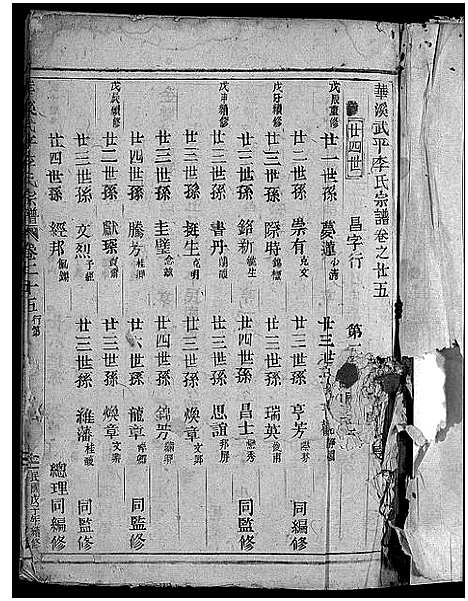 華溪武平李氏宗譜卷之廿五
廿四世 昌字行 第
戊辰重修
廿一世孫 夢蓮小濤 廿三世孫
廿二世孫 崇有克文 廿三世孫 亨芳
戊子續修
廿三世孫 際時錦標 廿三世孫 瑞英 同編修
廿三世孫 銘新 廿四世孫 昌士懋秀
戊申續修
廿二世孫 書丹 廿三世孫 思誼邦屏 同監修
廿三世孫 挺生克明 廿三世孫 煥章文郁
廿四世孫 圭璧 廿四世孫 錦芳
廿四世孫 騰芳桂 廿六世孫 龍章 同監修
戊辰續修
廿二世孫 獻琛 廿三世孫 煥章文郁
廿三世孫 文烈子經 廿三世孫 維藩桂 同監修
廿四世孫 經邦 總理同編修
李氏宗譜 卷二十五 行第 民國戊子年續修